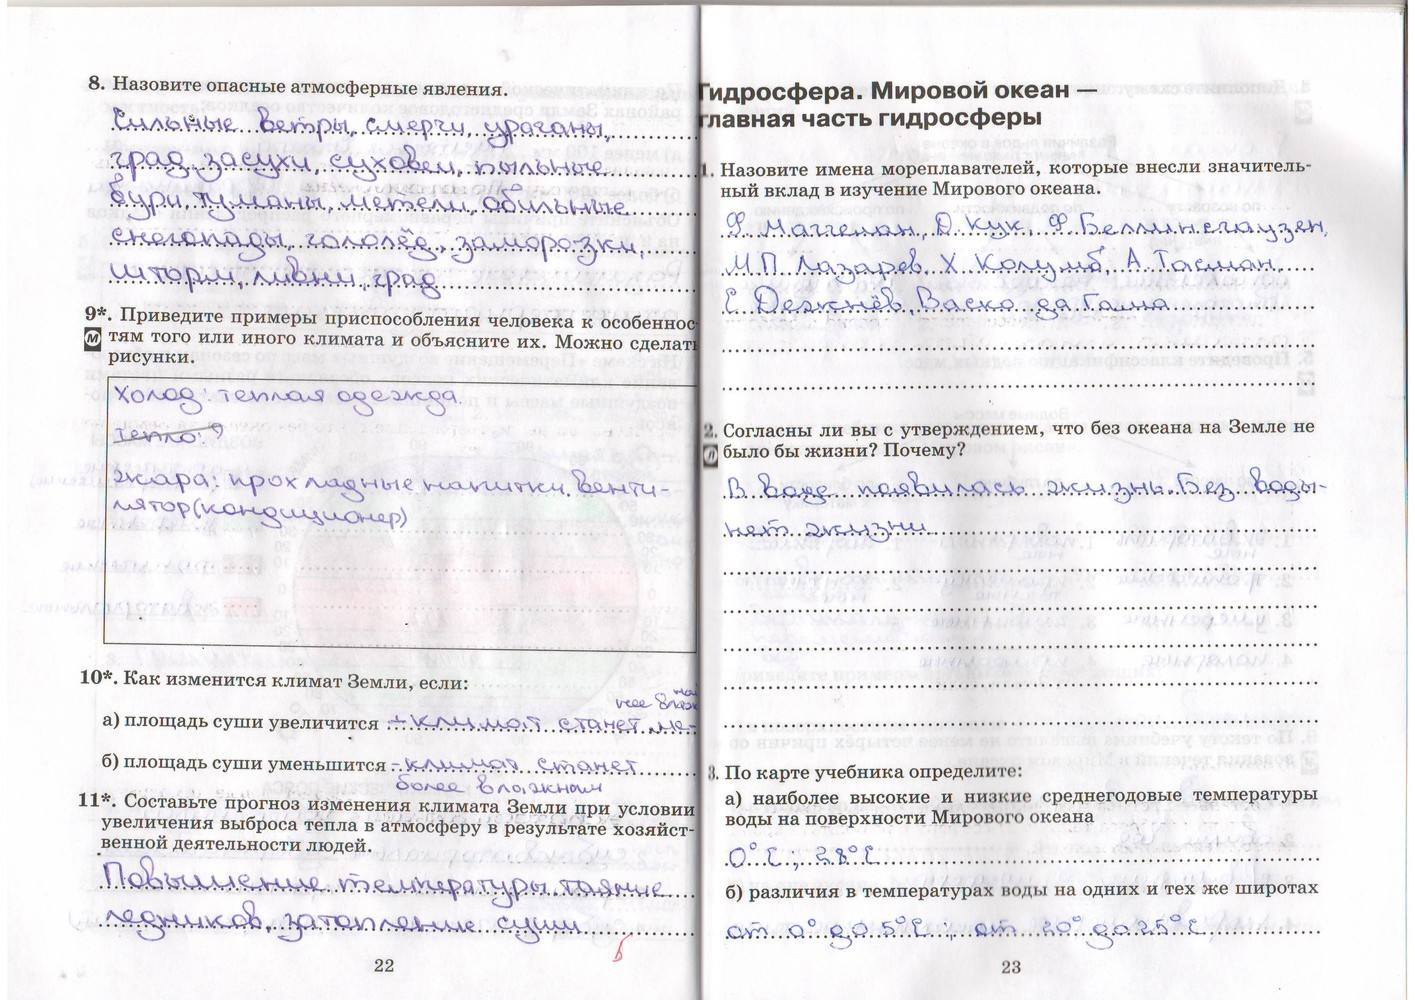 8. Назовите опасные атмосферные явления.
Сильные ветры, смерчи, ураганы,
град, засухи, суховеи, пыльные
бури, туманы, метели, обильные
снегопады, гололёд, заморозки,
шторм, ливни, град
9*. Приведите примеры приспособления человека к особеннос-
М тям того или иного климата и объясните их. Можно сделать
рисунки.
Холод: теплая одежда.
Тепло?
жара: прохладные напитки, венти-
лятор(кондиционер)
10*. Как изменится климат Земли, если:
нее влаж
а) площадь суши увеличится – климат станет ме-
б) площадь суши уменьшится – климат станет
более влажным
11*. Составьте прогноз изменения климата Земли при условии
увеличения выброса тепла в атмосферу в результате хозяйст-
венной деятельности людей.
Повышение температуры, таяние
ледников, затопление суши
22
Гидросфера. Мировой океан —
главная часть гидросферы
1. Назовите имена мореплавателей, которые внесли значитель-
ный вклад в изучение Мирового океана.
Ф. Магелан, Д. Кук, Ф. Беллинсгаузен,
М.П. Лазарев, Х. Колумб, А. Тасман,
С. Дежнёв, Васко да Гама
2. Согласны ли вы с утверждением, что без океана на Земле не
Л было бы жизни? Почему?
В воде появилась жизнь. Без воды-
нет жизни.
3. По карте учебника определите:
а) наиболее высокие и низкие среднегодовые температуры
воды на поверхности Мирового океана
0°C; 28°C
б) различия в температурах воды на одних и тех же широтах
от 0° до 5°C; от 20° до 25°C
23